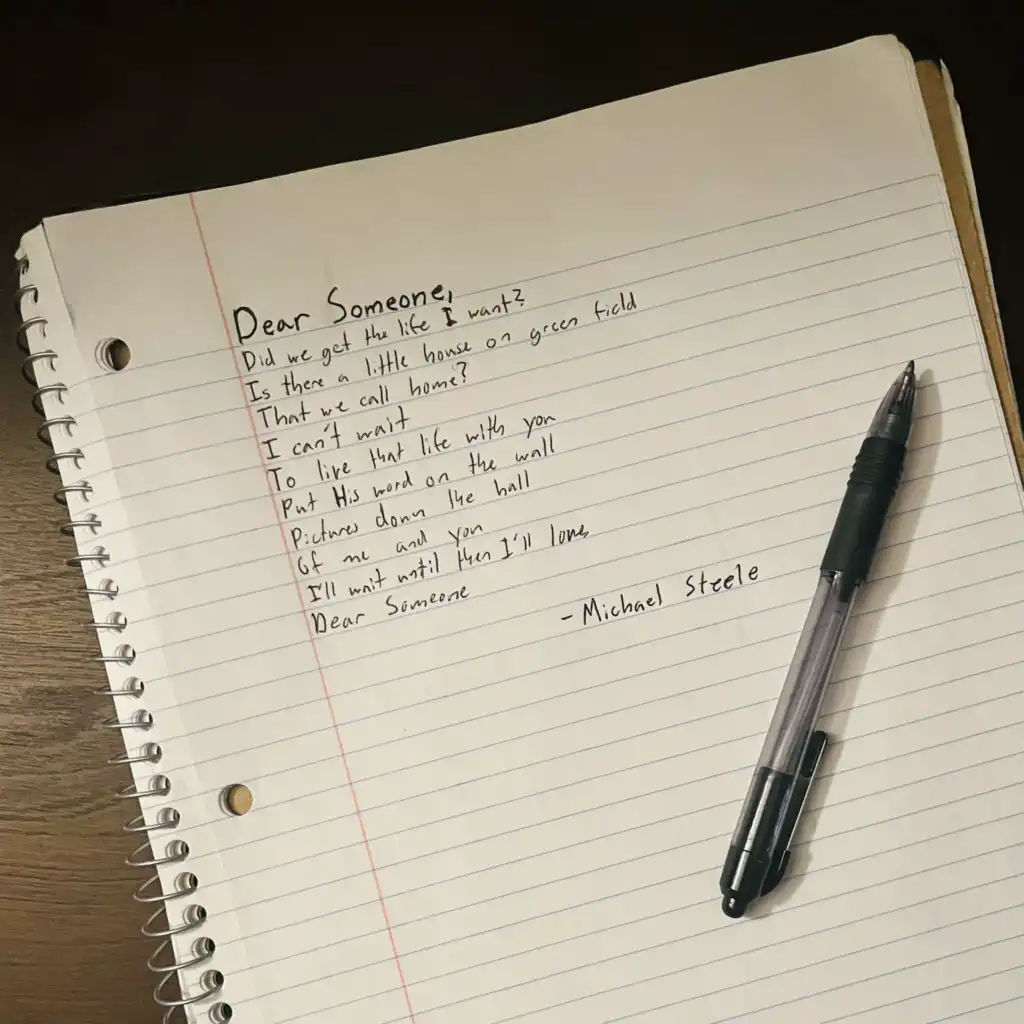 Dear Someone,
Did we get the life I want?
Is there a little house on green field
That we call home?
I can't wait
To live that life with you
Put His word on the wall
Pictures down the hall
Of me and you
I'll wait until then I'll love
Dear Someone
- Michael Steele